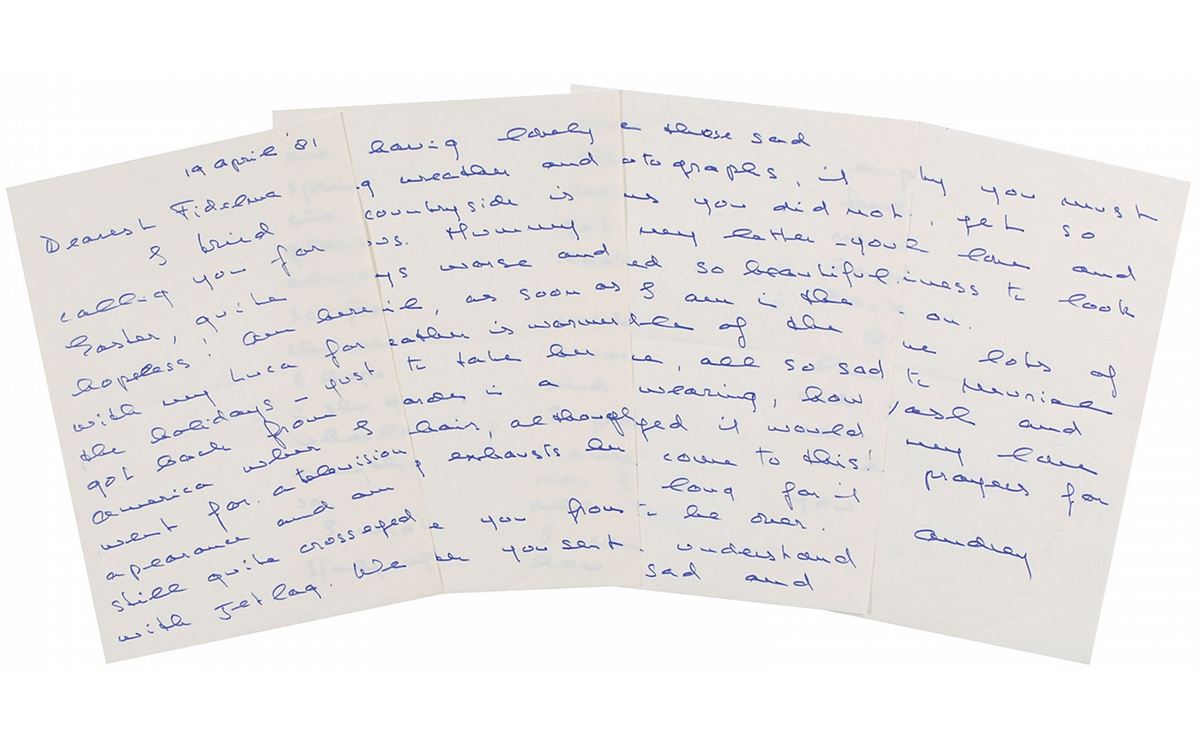 19 april '81
Dearest Fidelma
I tried
calling you for
Easter, quite
hopeless! Am here
with my Luca for
the holidays – just
got back from
america where I
went for a television
apearance and am
still quite crosseyed
with Jetlag. We
having lovely
g weather and
countryside is
us. Mummy
ys worse and
as soon as
eather is warmer
to take her
arden in a
hair, although
g exhausts her
e you from
you sent
e those sad
otographs, it
ns you did not
my letter – you
ed so beautiful
I am in the
dle of the
all so sad
wearing, how
ged it would
come to this!
long for it
to be over.
understand
sad and
hy you must
get so
love and
iness to look
on.
ve lots of
to
ash and
my love
prayers for
Audrey